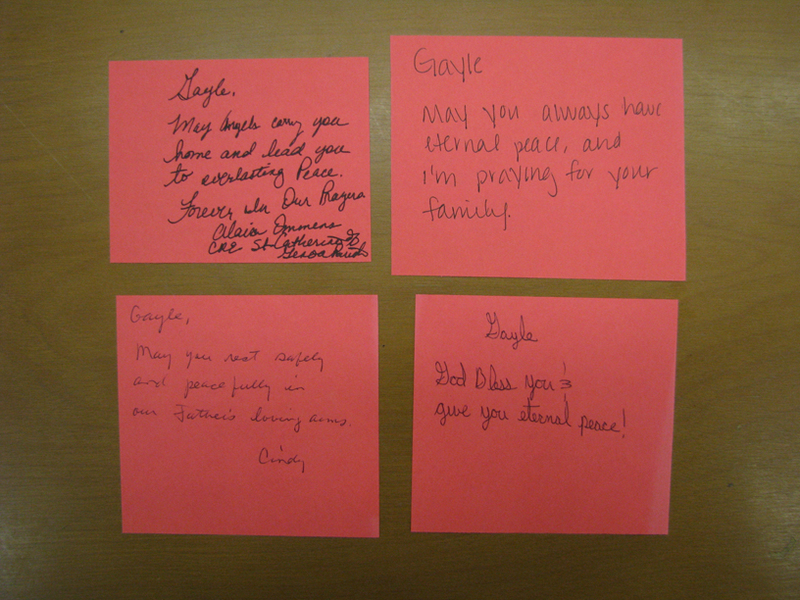 Gayle,
May Angels carry you
home and lead you
to everlasting Peace.
Forever In Our Prayers
CRE St Catherine
Gayle
May you always have
eternal peace, and
I'm praying for your
family.
Gayle,
May you rest safely
and peacefully in
our Father's loving arms.
Cindy
Gayle
God Bless You &
give you eternal peace!